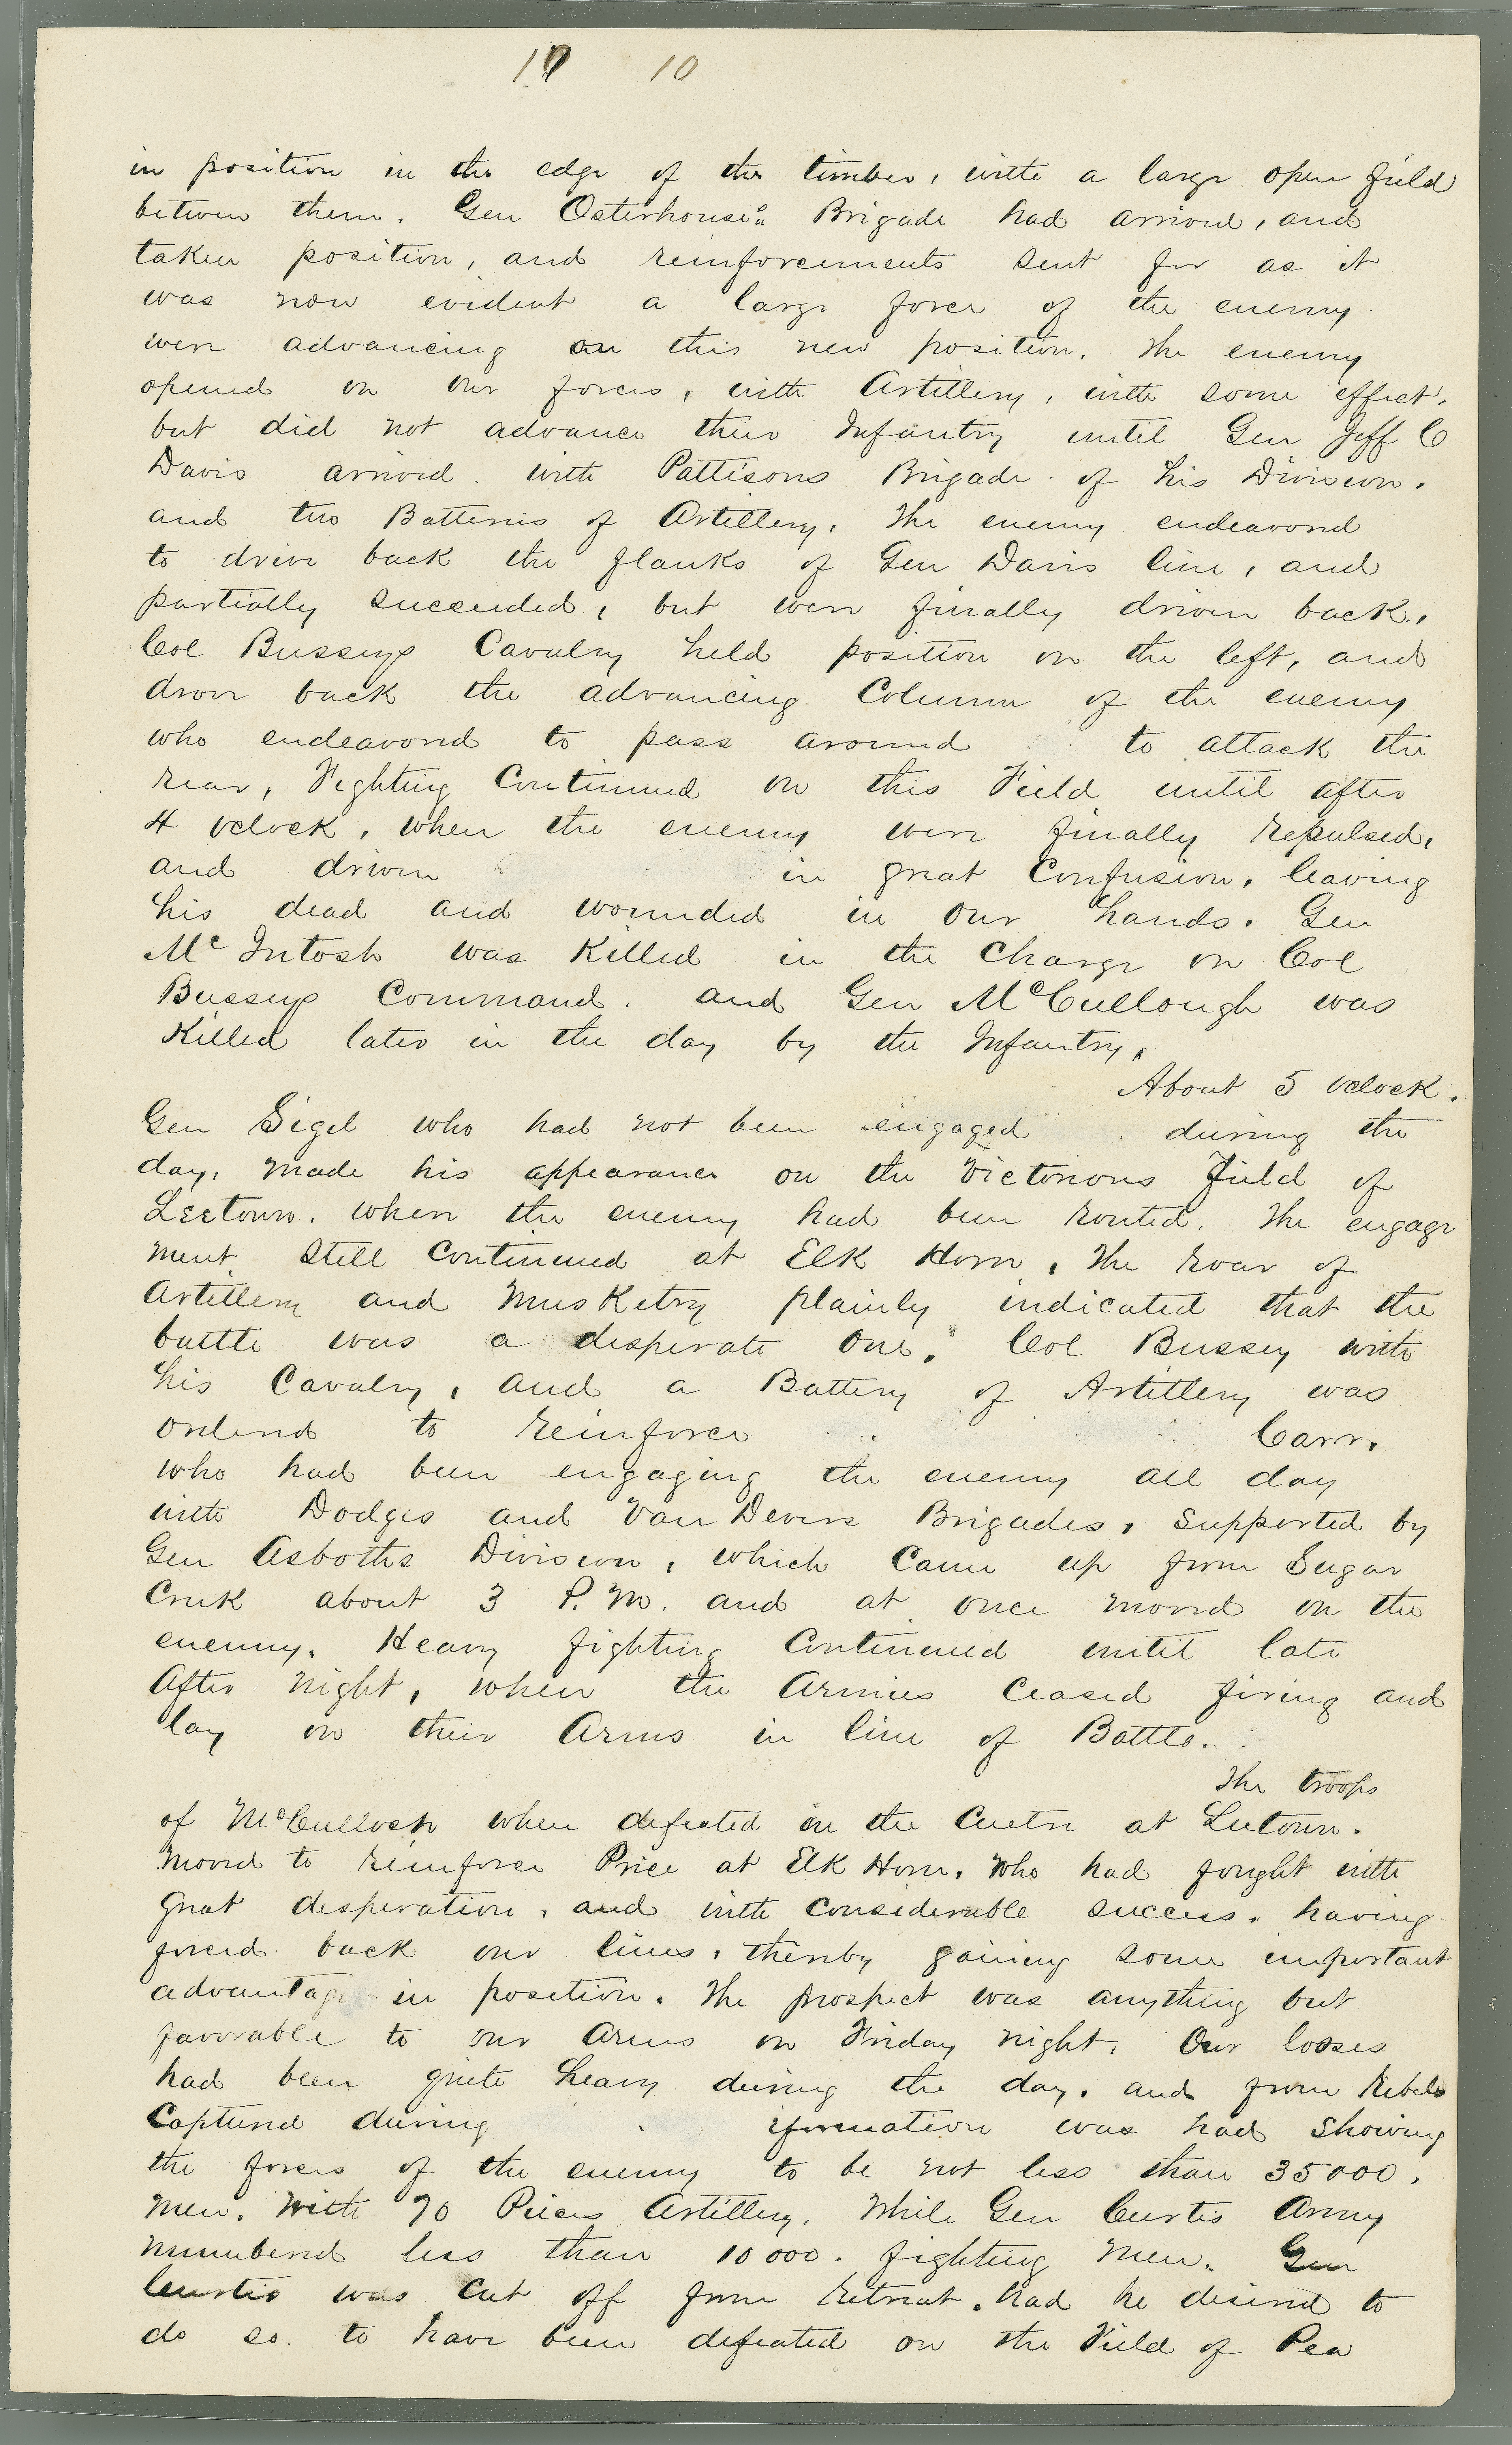 19 10
in position in the edge of the timber, with a large open field
between them. Gen Osterhouse's Brigade had arrived, and
taken position, and reinforcements sent for as it
was now evident a large force of the enemy
were advancing on this new position. The enemy
opened on our forces, with Artillery, with some effect.
but did not advance their Infantry until Gen Jeff C
Davis arrived. with Pattisons Brigade. of his Division.
and two Batteries of Artillery. The enemy endeavored
to drive back the flanks of Gen Davis line, and
partially succeeded, but were finally driven back.
Col Busseys Cavalry held position on the left, and
drove back the advancing Column of the enemy
who endeavored to pass around to attack the
rear, Fighting Continued on this Field until after
4 oclock, when the enemy were finally repulsed,
and driven in great Confusion, leaving
his dead and wounded in our hands. Gen
McIntosh was Killed in the Charge on Col
Busseys Command. and Gen McCullough was
Killed later in the day by the Infantry,
About 5 oclock.
Gen Sigel who had not been engaged during the
day, made his appearance on the Victorious field of
Leetown. when the enemy had been routed. The engage
ment still Continued at Elk Horn, The roar of
Artillery and Musketry plainly indicated that the
battle was a desperate one. Col Bussey with
his Cavalry, and a Battery of Artillery was
ordered to reinforce Carr.
who had been engaging the enemy all day
with Dodges and Van Devers Brigades, supported by
Gen Asboths Division, which Came up from Sugar
Creek about 3 P.M. and at once moved on the
enemy. Heavy fighting Continued until late
After night, when the Armies Ceased firing and
lay on their Arms in line of Battle.
The troops
of McCulloch when defeated in the Centre at Leetown.
moved to reinforce Price at Elk Horn. Who had fought with
great desperation, and with Considerable success. having
forced back our lines, thereby gaining some important
advantage in position. The prospect was anything but
favorable to our Arms on Friday night. Our losses
had been quite heavy during the day. and from Rebels
Captured during iformation was had showing
the forces of the enemy to be not less than 35000,
Men. With 70 Pieces Artillery. While Gen Curtis Army
numbered less than 10000. fighting Men. Gen
Curtis was Cut off from retreat. had he desired to
do so. to have been defeated on the Field of Pea